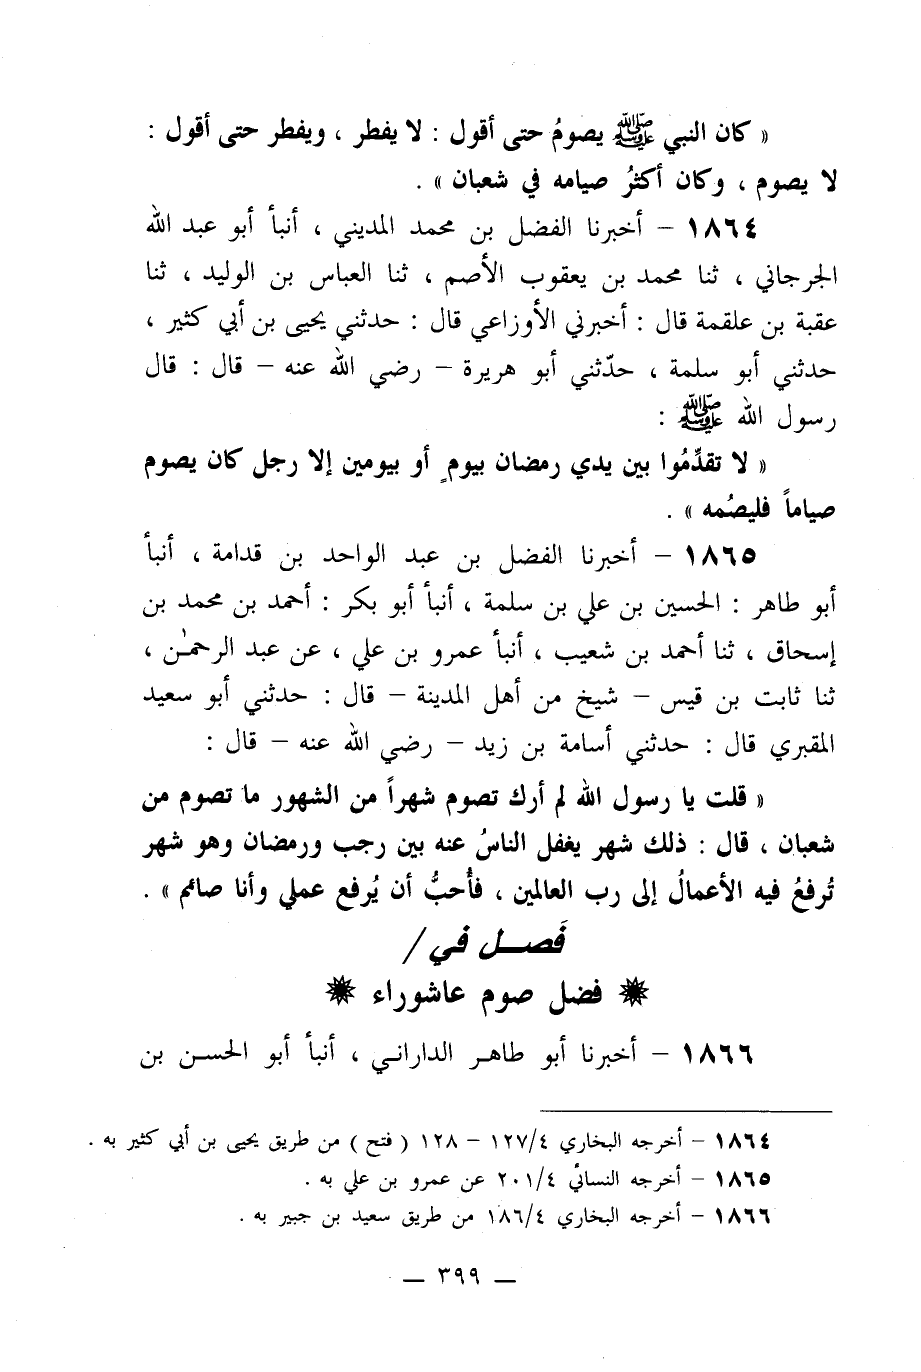 « كان النبي ﷺ يصومُ حتى أقول : لا يفطر ، ويفطر حتى أقول :
لا يصوم ، وكان أكثرُ صيامه في شعبان » .
١٨٦٤ – أخبرنا الفضل بن محمد المديني ، أنبأ أبو عبد الله
الجرجاني ، ثنا محمد بن يعقوب الأصم ، ثنا العباس بن الوليد ، ثنا
عقبة بن علقمة قال : أخبرني الأوزاعي قال : حدثني يحيى بن أبي كثير ،
حدثني أبو سلمة ، حدّثني أبو هريرة – رضي الله عنه – قال : قال
رسول الله ﷺ :
« لا تقدِّمُوا بين يدي رمضان بيومٍ أو بيومين إلا رجل كان يصوم
صياماً فليصُمه » .
١٨٦٥ – أخبرنا الفضل بن عبد الواحد بن قدامة ، أنبأ
أبو طاهر : الحسين بن علي بن سلمة ، أنبأ أبو بكر : أحمد بن محمد بن
إسحاق ، ثنا أحمد بن شعيب ، أنبأ عمرو بن علي ، عن عبد الرحمٰن ،
ثنا ثابت بن قيس – شيخ من أهل المدينة – قال : حدثني أبو سعيد
المقبري قال : حدثني أسامة بن زيد – رضي الله عنه – قال :
« قلت يا رسول الله لم أرك تصوم شهراً من الشهور ما تصوم من
شعبان ، قال : ذلك شهر يغفل الناسُ عنه بين رجب ورمضان وهو شهر
تُرفعُ فيه الأعمالُ إلى رب العالمين ، فأُحبُّ أن يُرفع عملي وأنا صائم » .
فَصـــل في /
❋ فضل صوم عاشوراء ❋
١٨٦٦ – أخبرنا أبو طاهـر الدارانـي ، أنبأ أبو الحسـن بن
١٨٦٤ – أخرجه البخاري ١٢٧/٤ – ١٢٨ ( فتح ) من طريق يحيى بن أبي كثير به .
١٨٦٥ – أخرجه النسائي ٢٠١/٤ عن عمرو بن علي به .
١٨٦٦ – أخرجه البخاري ١٨٦/٤ من طريق سعيد بن جبير به .
— ٣٩٩ —